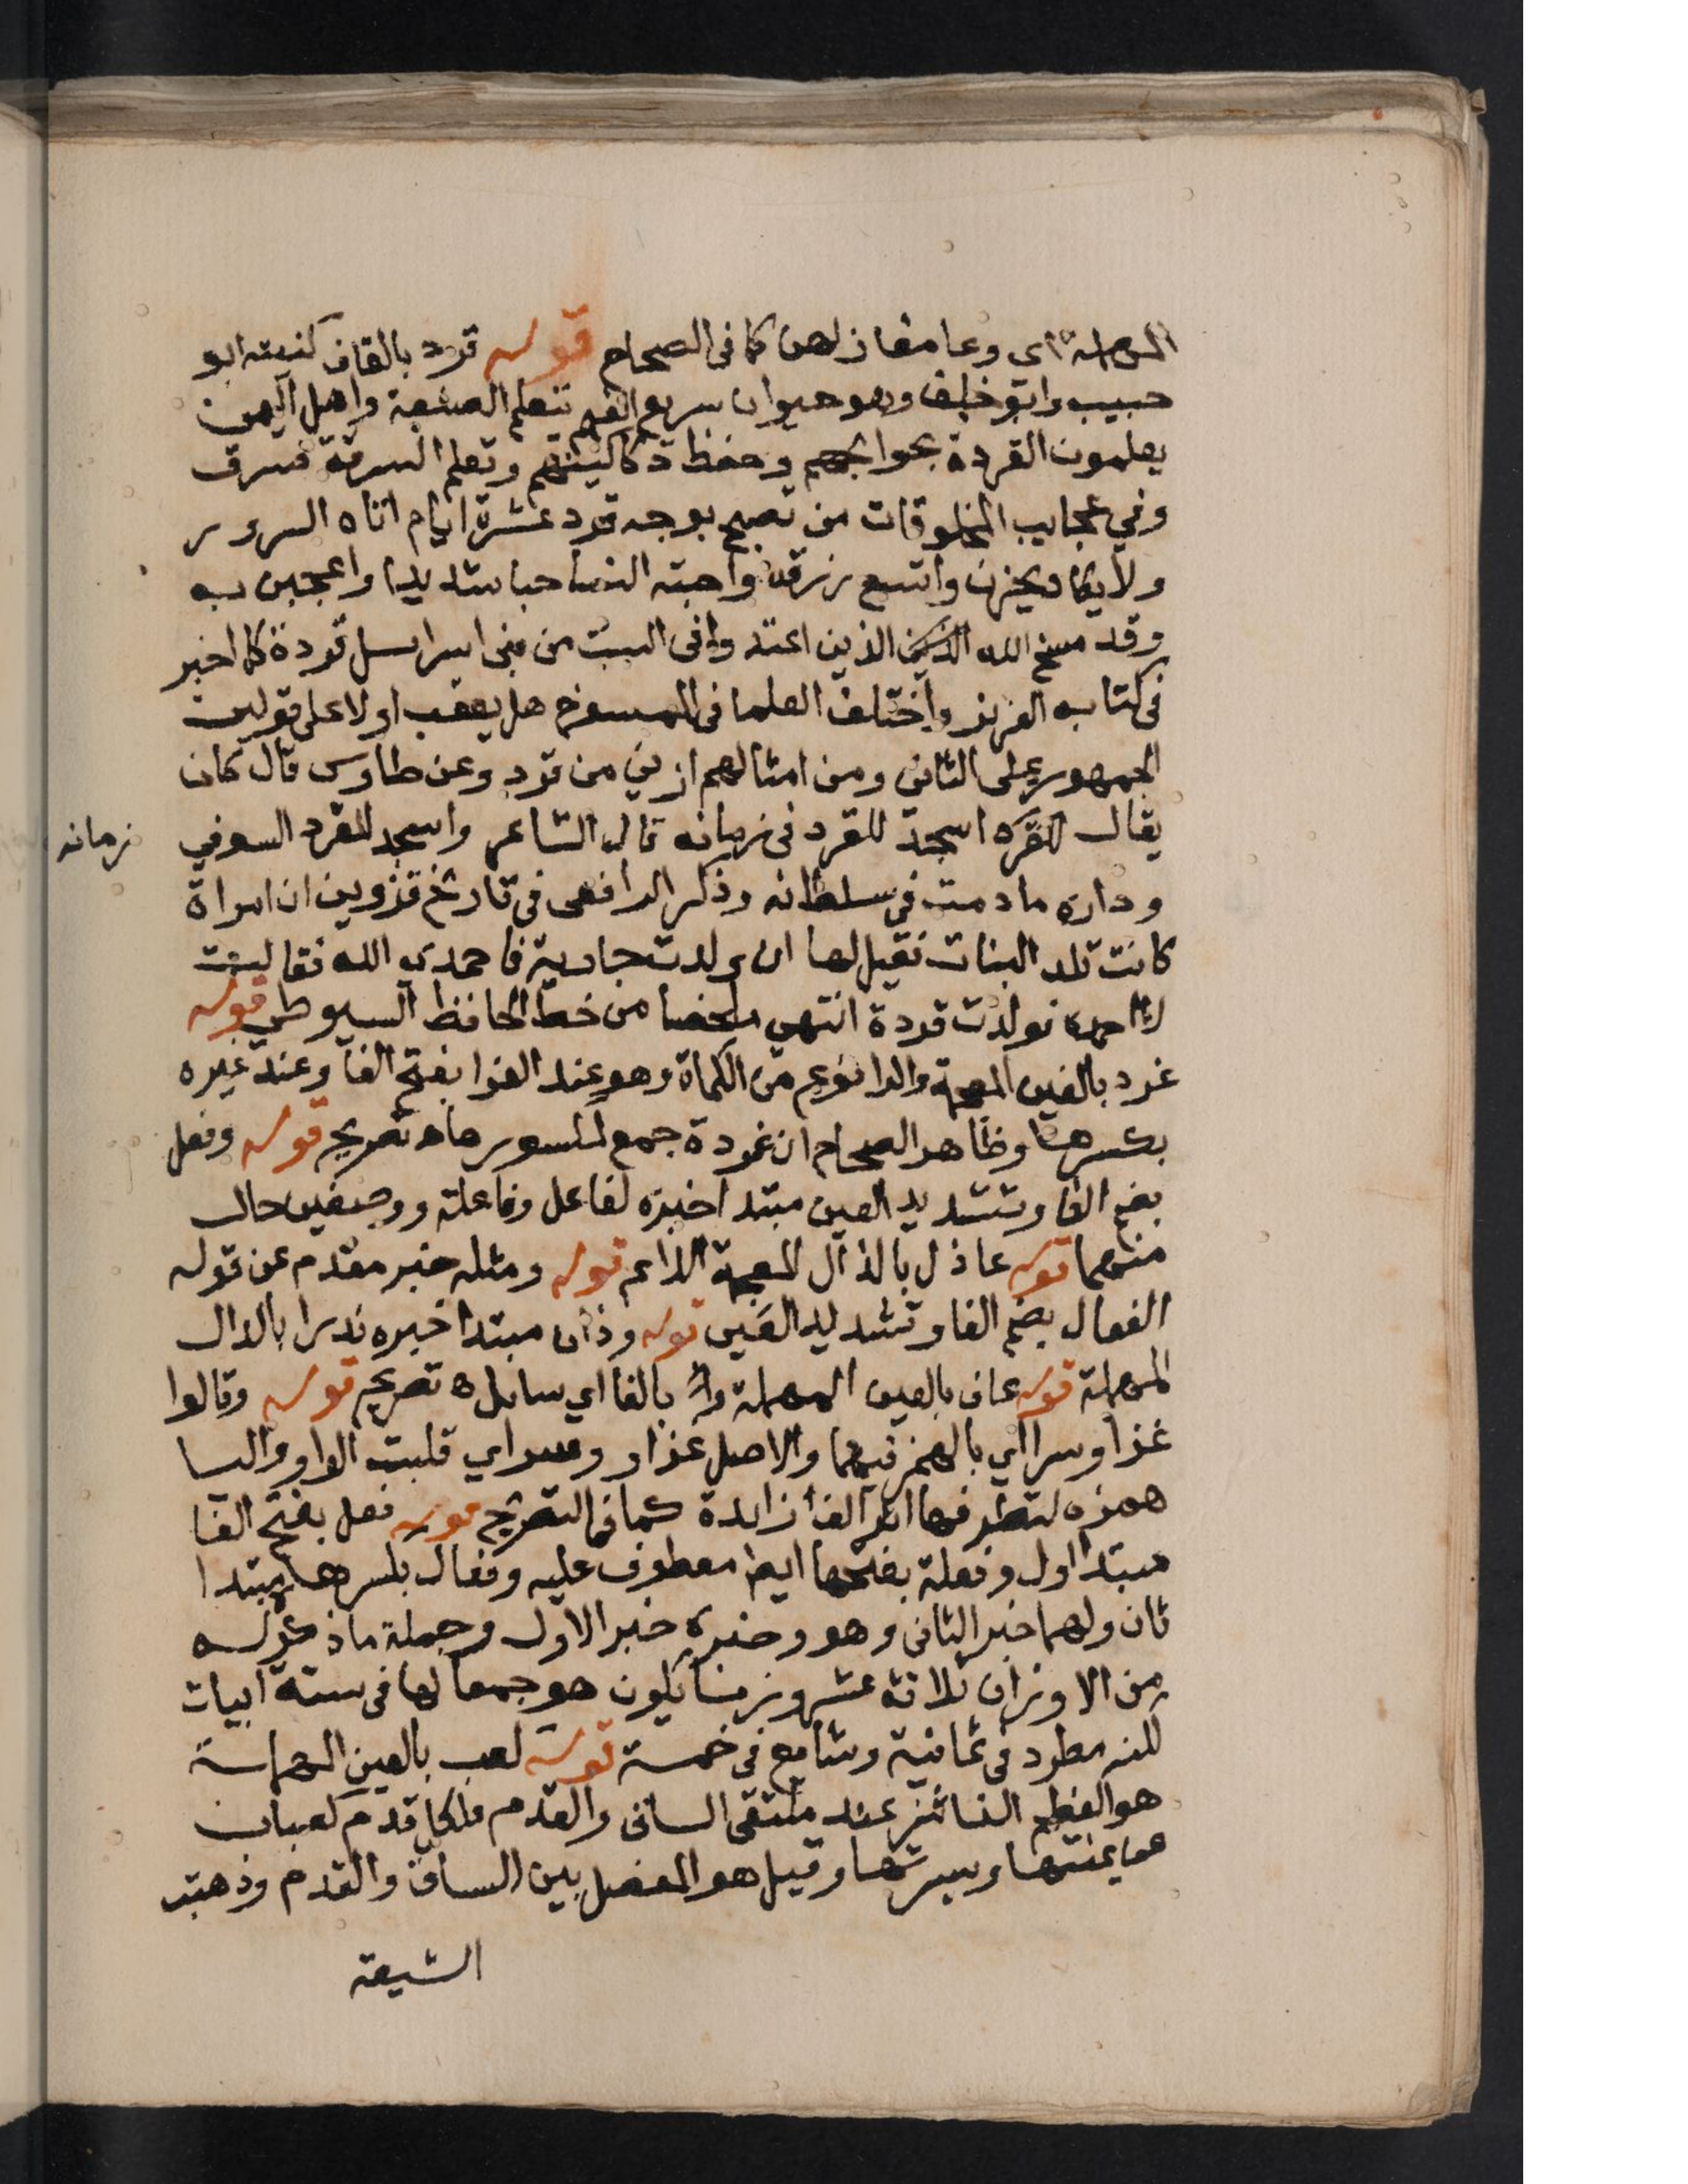 المهملة اي وعا مغازلهن كما في الصحاح قوله قرد بالقاف كنيته ابو
حبيب وابو خلف وهو حيوان سريع الفهم يتعلم الصنعة واهل اليمن
يعلمون القردة بحوايجهم وحفظ دكاكينهم وتعلم السرقة فسرق
وفي عجايب المخلوقات من تصبح بوجه قرد عشرة ايام اتاه السرور
ولا يكاد يحزن واتسع رزقه واحبته النسا حبا شديدا واعجبن به
وقد مسخ الله الذين اعتدوا في السبت من بني اسرايل قردة كما اخبر
في كتابه العزيز واختلف العلما في الممسوخ هل يعقب اولا على قولين
الجمهور على الثاني ومن امثالهم ازني من قرد وعن طاوس قال كان
يقال اسجد للقرد في زمانه قال الشاعر واسجد للقرد السو في زمانه
وداره ما دمت في سلطانه وذكر الرافعي في تاريخ قزوين ان امراة
كانت تلد البنات فقيل لها ان ولدت جارية فاحمدي الله فقالت
لا احمده فولدت قردة انتهى ملخصا من خط الحافظ السيوطي قوله
غرد بالغين المعجمة والرا نوع من الكماة وهو عند الفرا بفتح الفا وعند غيره
بكسرها وظاهر الصحاح ان غردة جمع لمكسور تصريح قوله وفعل
بضم الفا وتشديد العين مبتدا خبره لفاعل وفاعلة ووصفين حال
منهما قوله عاذل بالذال المعجمة قوله ومثله خبر مقدم عن قوله
الفعال بضم الفا وتشديد العين قوله وذان مبتدا خبره ندرا بالدال
المهملة قوله عاف بالعين المهملة بالفا اي سايل ه تصريح قوله وقالوا
غزا وسرا اي بالهمز فيهما والاصل غزاو وسراي قلبت الواو واليا
همزه لتطرفها اثر الف زايدة كما في التصريح قوله فعل بفتح الفا
مبتدا اول وفعلة بفتحها ايضا معطوف عليه وفعال بكسرها مبتدا
ثان ولهما خبر الثاني وهو وخبره خبر الاول وجملة ما ذكر له
من الاوزان ثلاثة عشر وزنا يكون هو جمعا لها في ستة ابيات
لكنه مطرد في ثمانية وشايع في خمسة قوله لعب بالعين المهملة
هو العظم الناشز عند ملتقى الساق والقدم فلكل قدم كعبان
عن يمنتها ويسرتها وقيل هو المفصل بين الساق والقدم وذهبت
الشيعة